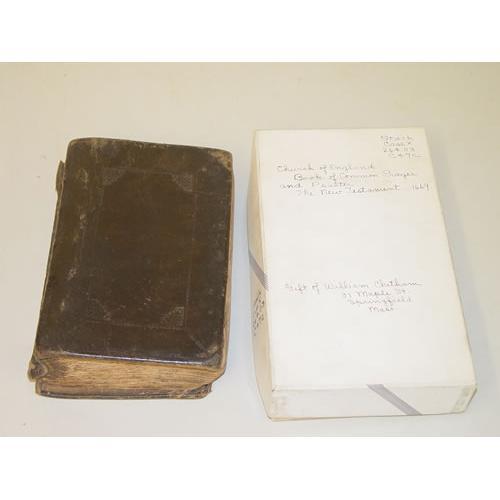 Case X
264.03
C47c
Church of England
Book of Common Prayer
and Psalter
The New Testament 1669
Gift of William Chatham
Maple St
Springfield
Mass